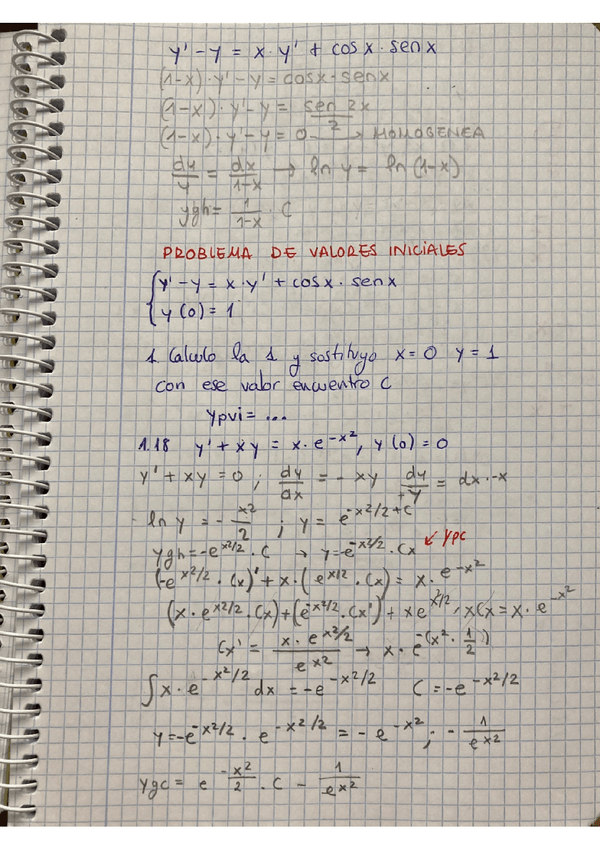 y' - y = x · y' + cos x · sen x
(1-x) · y' - y = cos x · sen x
(1-x) · y' - y = sen 2x / 2
(1-x) · y' - y = 0 → HOMOGENEA
dy/y = dx/1-x → ln y = ln (1-x)
ygh = 1/1-x · C
PROBLEMA DE VALORES INICIALES
{ y' - y = x · y' + cos x · sen x
{ y (0) = 1
1. Calculo la 1 y sostituyo x = 0 y = 1
con ese valor encuentro C
ypvi = ...
1.18 y' + xy = x · e^-x², y (0) = 0
y' + xy = 0 ; dy/dx = - xy dy/y = dx · -x
ln y = - x²/2 ; y = e^-x²/2 + C
ygh = -e^x²/2 · C → y = e^-x²/2 · Cx ↙ ypc
(-e^x²/2 · Cx)' + x · (e^x/2 · Cx) = x · e^-x²
(x · e^x²/2 · Cx) + (e^-x²/2 · Cx') + x e^x/2 · x Cx = x · e^-x²
Cx' = x · e^x²/2 / e^x² → x · e^-(x² · 1/2)
∫ x · e^-x²/2 dx = -e^-x²/2 C = -e^-x²/2
y = -e^-x²/2 · e^-x²/2 = - e^-x² ; - 1/e^x²
ygc = e^-x²/2 · C - 1/e^x²